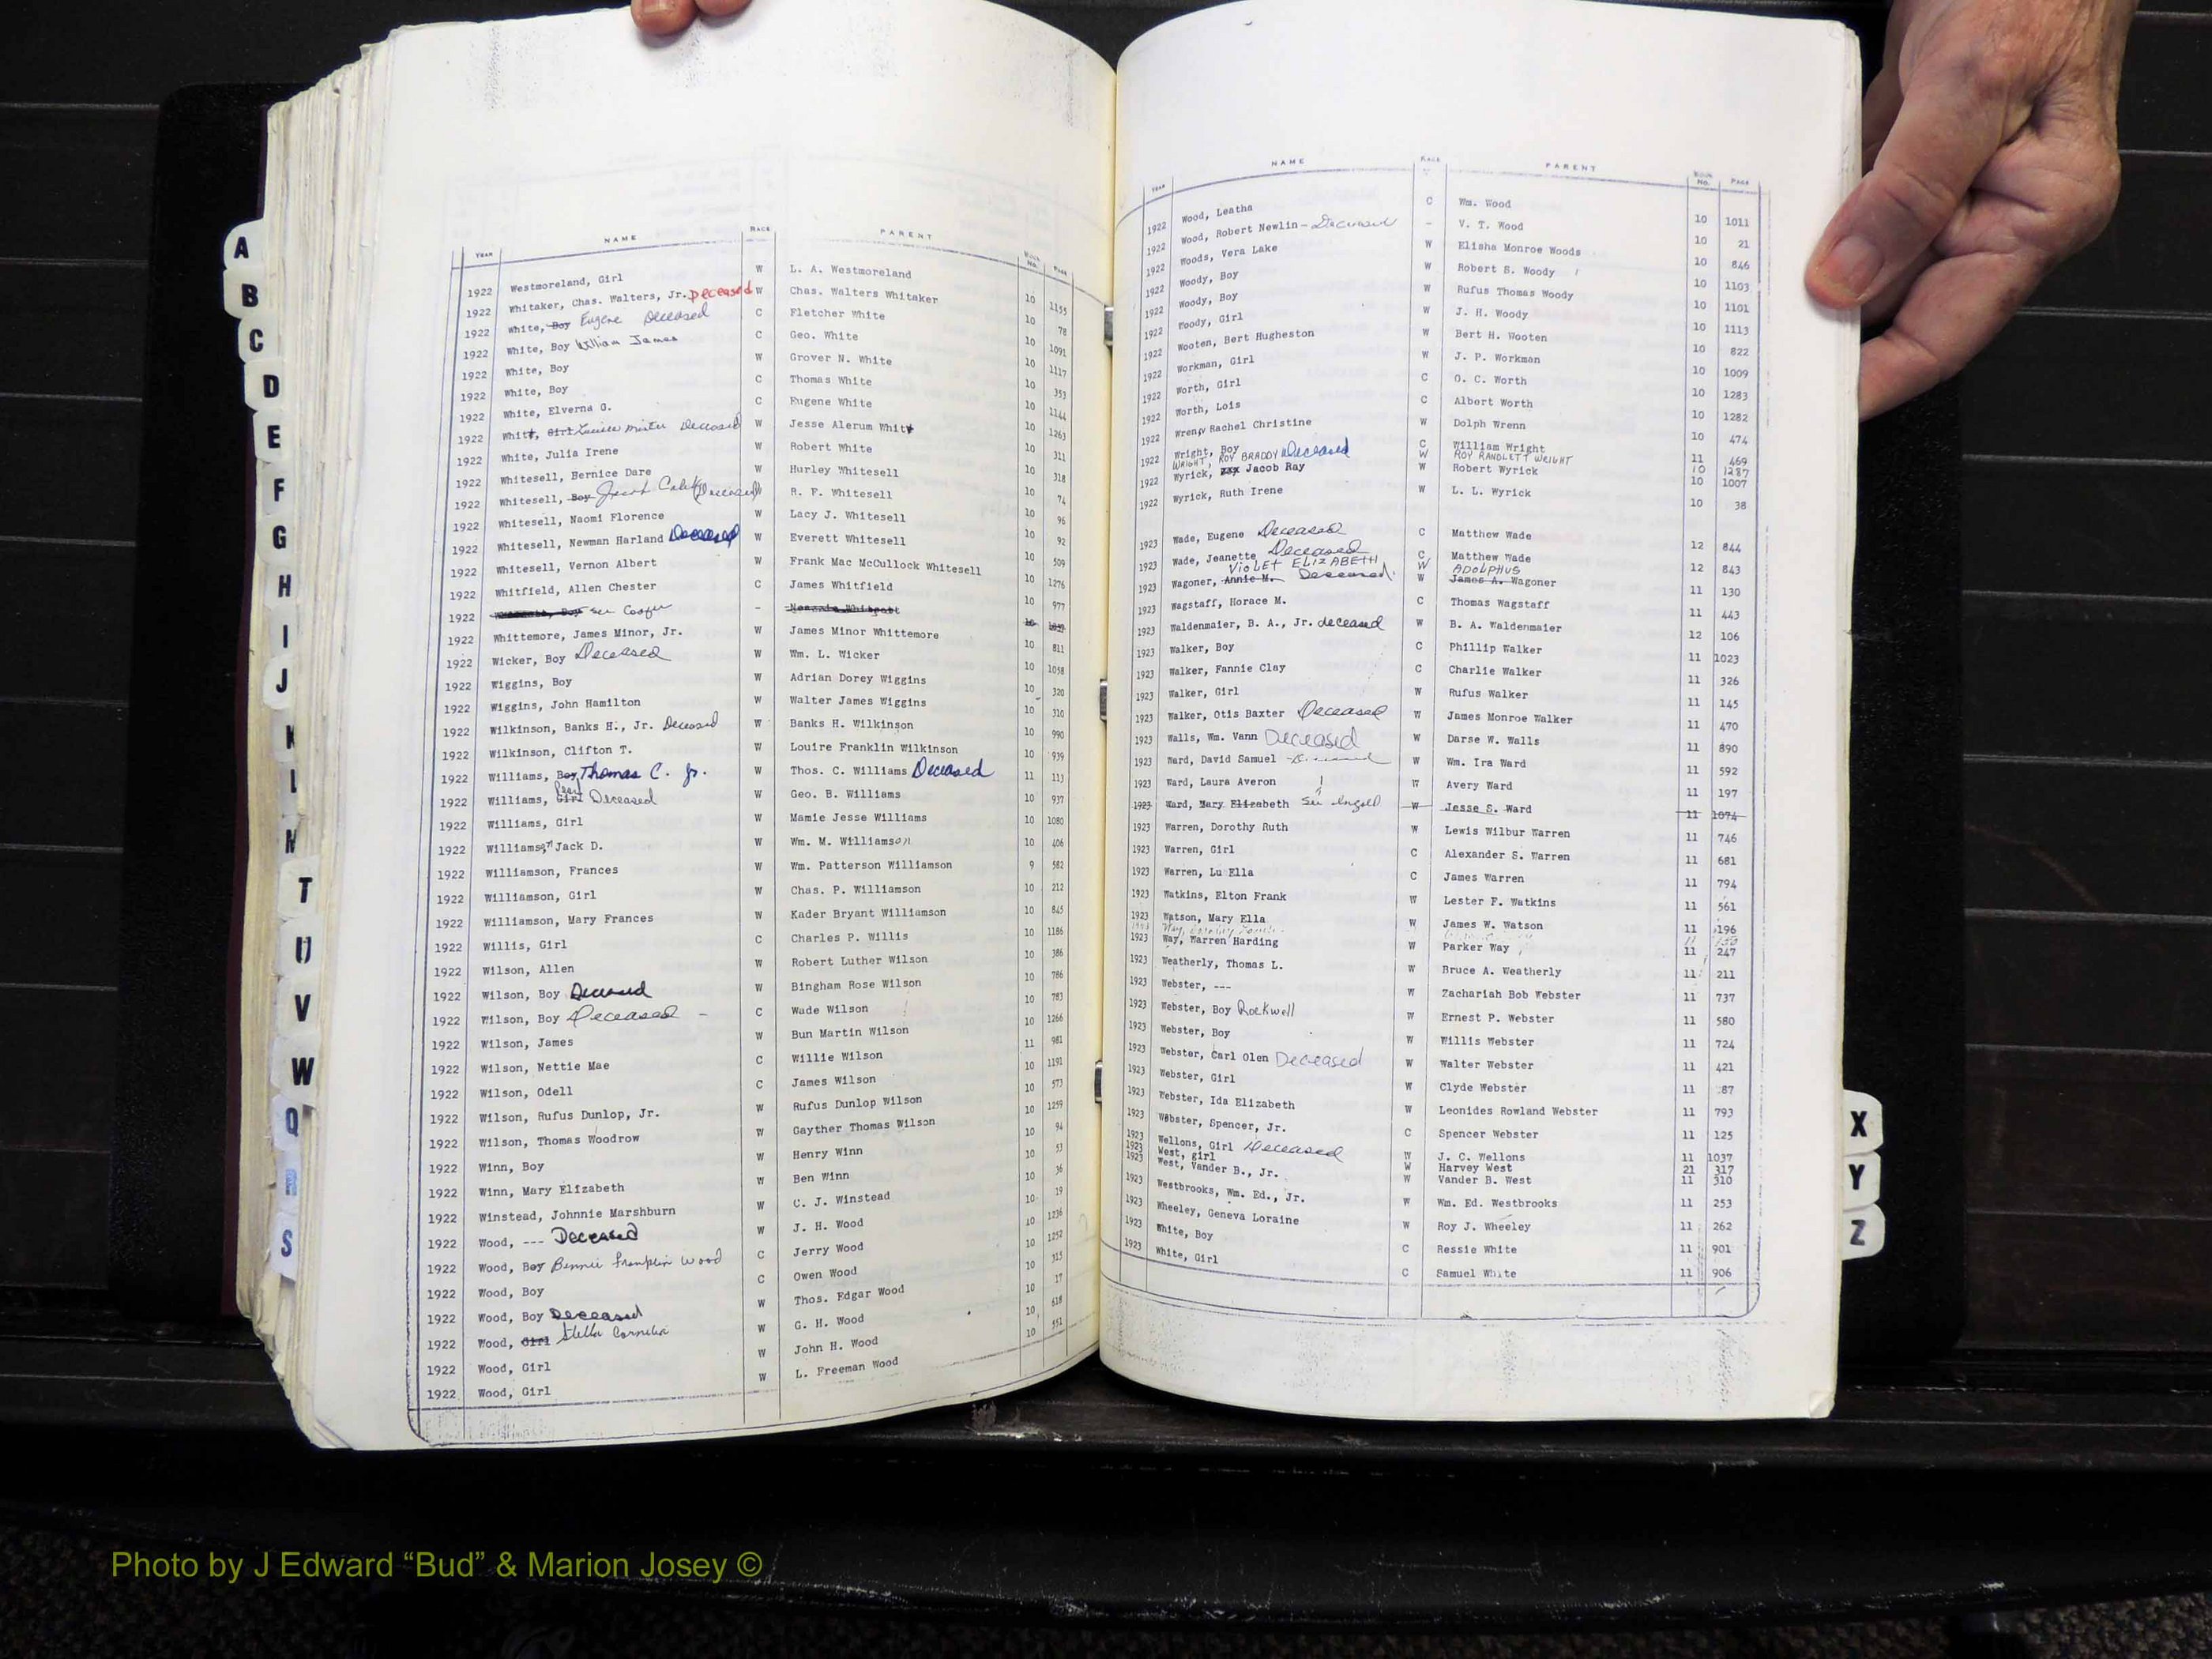 A
B
C
D
E
F
G
H
I
J
K
L
T
U
V
W
Q
S
YEAR NAME RACE PARENT BOOK NO. PAGE
1922 Westmoreland, Girl W L. A. Westmoreland 10 1155
1922 Whitaker, Chas. Walters, Jr. Deceased W Chas. Walters Whitaker 10 78
1922 White, Boy Eugene Deceased C Fletcher White 10 1091
1922 White, Boy William James C Geo. White 10 1117
1922 White, Boy W Grover N. White 10 353
1922 White, Boy C Thomas White 10 1144
1922 White, Elverna G. C Eugene White 10 1263
1922 Whitt, Girl Deceased W Jesse Alerum Whitt 10 311
1922 White, Julia Irene W Robert White 10 318
1922 Whitesell, Bernice Dare W Hurley Whitesell 10 74
1922 Whitesell, Boy Deceased W R. F. Whitesell 10 96
1922 Whitesell, Naomi Florence W Lacy J. Whitesell 10 92
1922 Whitesell, Newman Harland Deceased W Everett Whitesell 10 509
1922 Whitesell, Vernon Albert W Frank Mac McCullock Whitesell 10 1276
1922 Whitfield, Allen Chester C James Whitfield 10 977
1922 See Cooper - 10
1922 Whittemore, James Minor, Jr. W James Minor Whittemore 10 811
1922 Wicker, Boy Deceased W Wm. L. Wicker 10 1058
1922 Wiggins, Boy W Adrian Dorey Wiggins 10 320
1922 Wiggins, John Hamilton W Walter James Wiggins 10 310
1922 Wilkinson, Banks H., Jr. Deceased W Banks H. Wilkinson 10 990
1922 Wilkinson, Clifton T. W Louire Franklin Wilkinson 10 939
1922 Williams, Boy Thomas C. Jr. W Thos. C. Williams Deceased 11 113
1922 Williams, Girl Deceased W Geo. B. Williams 10 937
1922 Williams, Girl W Mamie Jesse Williams 10 1080
1922 Williamson, Jack D. W Wm. M. Williamson 10 406
1922 Williamson, Frances W Wm. Patterson Williamson 9 582
1922 Williamson, Girl W Chas. P. Williamson 10 212
1922 Williamson, Mary Frances W Kader Bryant Williamson 10 845
1922 Willis, Girl C Charles P. Willis 10 1186
1922 Wilson, Allen W Robert Luther Wilson 10 386
1922 Wilson, Boy Deceased W Bingham Rose Wilson 10 786
1922 Wilson, Boy Deceased - C Wade Wilson 10 783
1922 Wilson, James W Bun Martin Wilson 10 1266
1922 Wilson, Nettie Mae C Willie Wilson 11 981
1922 Wilson, Odell C James Wilson 10 1191
1922 Wilson, Rufus Dunlop, Jr. W Rufus Dunlop Wilson 10 573
1922 Wilson, Thomas Woodrow W Gayther Thomas Wilson 10 1259
1922 Winn, Boy W Henry Winn 10 94
1922 Winn, Mary Elizabeth W Ben Winn 10 53
1922 Winstead, Johnnie Marshburn W C. J. Winstead 10 36
1922 Wood, --- Deceased W J. H. Wood 10 19
1922 Wood, Boy Bennie Franklin Wood C Jerry Wood 10 1236
1922 Wood, Boy C Owen Wood 10 1252
1922 Wood, Boy Deceased W Thos. Edgar Wood 10 315
1922 Wood, Girl Stella Cornelia W G. H. Wood 10 17
1922 Wood, Girl W John H. Wood 10 618
1922 Wood, Girl W L. Freeman Wood 10 552
YEAR NAME RACE PARENT BOOK NO. PAGE
1922 Wood, Leatha C Wm. Wood 10 1011
1922 Wood, Robert Newlin - Deceased - V. T. Wood 10 21
1922 Woods, Vera Lake W Elisha Monroe Woods 10 846
1922 Woody, Boy W Robert S. Woody 10 1103
1922 Woody, Boy W Rufus Thomas Woody 10 1101
1922 Woody, Girl W J. H. Woody 10 1113
1922 Wooten, Bert Hugheston W Bert H. Wooten 10 822
1922 Workman, Girl W J. P. Workman 10 1009
1922 Worth, Girl C O. C. Worth 10 1283
1922 Worth, Lois C Albert Worth 10 1282
1922 Wrenn, Rachel Christine W Dolph Wrenn 10 474
1922 Wright, Boy C William Wright 11 469
WRIGHT, ROY BRADDY Deceased W ROY RANDLETT WRIGHT 10 1287
1922 Wyrick, xxx Jacob Ray W Robert Wyrick 10 1007
1922 Wyrick, Ruth Irene W L. L. Wyrick 10 38
1923 Wade, Eugene Deceased C Matthew Wade 12 844
1923 Wade, Jeanette Deceased C Matthew Wade 12 843
VIOLET ELIZABETH W ADOLPHUS
1923 Wagoner, Annie M. Deceased. W James A. Wagoner 11 130
1923 Wagstaff, Horace M. C Thomas Wagstaff 11 443
1923 Waldenmaier, B. A., Jr. deceased W B. A. Waldenmaier 12 106
1923 Walker, Boy C Phillip Walker 11 1023
1923 Walker, Fannie Clay C Charlie Walker 11 326
1923 Walker, Girl W Rufus Walker 11 145
1923 Walker, Otis Baxter Deceased W James Monroe Walker 11 470
1923 Walls, Wm. Vann Deceased W Darse W. Walls 11 890
1923 Ward, David Samuel W Wm. Ira Ward 11 592
1923 Ward, Laura Averon W Avery Ward 11 197
1923 Ward, Mary Elizabeth See Ingold W Jesse S. Ward 11 1074
1923 Warren, Dorothy Ruth W Lewis Wilbur Warren 11 746
1923 Warren, Girl C Alexander S. Warren 11 681
1923 Warren, Lu Ella C James Warren 11 794
1923 Watkins, Elton Frank W Lester F. Watkins 11 561
1923 Watson, Mary Ella W James W. Watson 11 196
1923 Way, Warren Harding W Parker Way 11 247
1923 Weatherly, Thomas L. W Bruce A. Weatherly 11 211
1923 Webster, --- W Zachariah Bob Webster 11 737
1923 Webster, Boy Rockwell W Ernest P. Webster 11 580
1923 Webster, Boy W Willis Webster 11 724
1923 Webster, Carl Olen Deceased W Walter Webster 11 421
1923 Webster, Girl W Clyde Webster 11 87
1923 Webster, Ida Elizabeth W Leonides Rowland Webster 11 793
1923 Webster, Spencer, Jr. C Spencer Webster 11 125
1923 Wellons, Girl Deceased W J. C. Wellons 11 1037
1923 West, girl W Harvey West 21 317
1923 West, Vander B., Jr. W Vander B. West 11 310
1923 Westbrooks, Wm. Ed., Jr. W Wm. Ed. Westbrooks 11 253
1923 Wheeley, Geneva Loraine W Roy J. Wheeley 11 262
1923 White, Boy C Ressie White 11 901
1923 White, Girl C Samuel White 11 906
X
Y
Z
Photo by J Edward “Bud” & Marion Josey ©